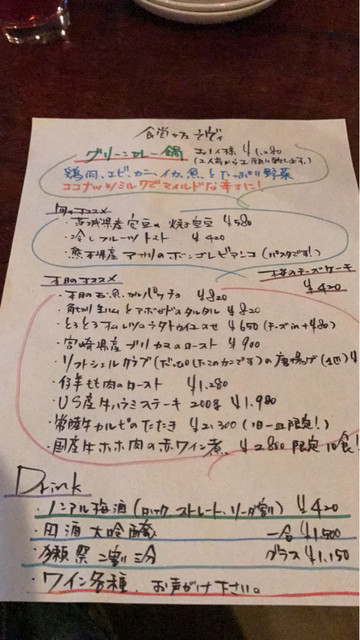 食堂カフェ
グリーンカレー鍋 お一人様 ¥1,280
(2人前から
鶏肉、エビ、カニ、イカ、魚とたっぷり野菜
ココナッツミルクでマイルドな辛さに!
旬のオススメ
・茨城県産空豆の焼き空豆 ¥580
・冷しフルーツトマト ¥420
・熊本県産アサリのボンゴレビアンコ(パスタです!)
チーズケーキ
¥420
本日のオススメ
・本日のお魚カルパッチョ ¥820
・角切り生ハムとアボカドのタルタル ¥820
・とろとろオムレツ ¥650 (チーズin +¥80)
・宮崎県産ブリカマのロースト ¥900
・ソフトシェルクラブ(だっぴしたてのカニです)の唐揚げ(1匹) ¥
・仔羊もも肉のロースト ¥1,280
・US産牛ハラミステーキ 200g ¥1,980
・常陸牛カルビのたたき ¥21,300 (1日一皿限定!)
・国産牛ホホ肉の赤ワイン煮 ¥2,800 限定10食!
Drink
・ノンアル梅酒(ロック ストレート、ソーダ割) ¥420
・田酒 大吟醸 一合 ¥1,500
・獺祭 二割三分 グラス ¥1,150
・ワイン各種、お声がけ下さい。